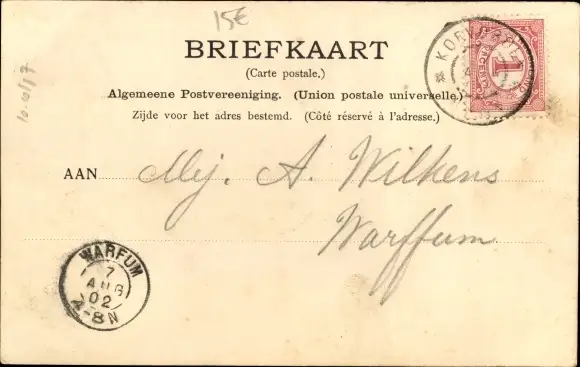 15€
BRIEFKAART
(Carte postale,)
Algemeene Postvereeniging. (Union postale universelle.)
Zijde voor het adres bestemd. (Côté réservé à l'adresse.)
AAN Mej. A. Wilkens
Warffum
1
WARFUM
7
AUG
02
4-8N